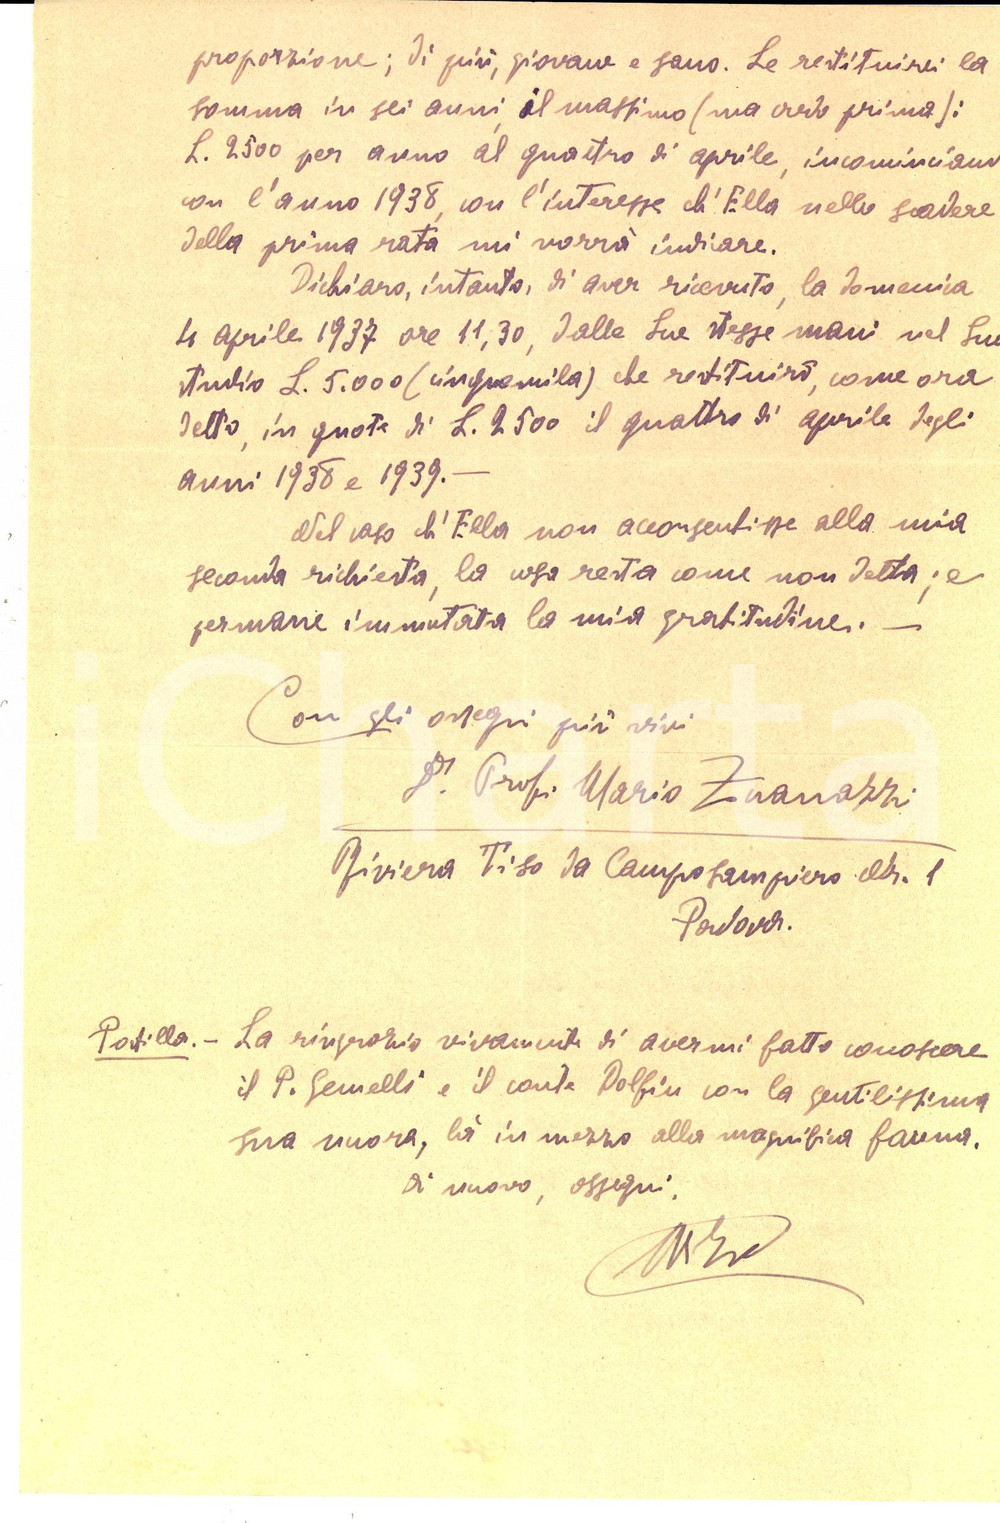 proporzione; di più, giovane e sano. Le restituirei la
somma in sei anni, al massimo (ma credo prima):
L. 2500 per anno al quattro di aprile, incominciando
con l'anno 1938, con l'interesse ch'Ella nello scadere
della prima rata mi vorrà indicare.
Dichiaro, intanto, di aver ricevuto, la domenica
4 aprile 1937 ore 11,30, dalle Sue stesse mani nel Suo
studio L. 5.000 (cinquemila) che restituirò, come ora
detto, in quote di L. 2500 il quattro di aprile degli
anni 1938 e 1939. —
Nel caso ch'Ella non acconsentisse alla mia
seconda richiesta, la cosa resta come non detta; e
permane immutata la mia gratitudine. —
Con gli ossequi più vivi
Prof. Mario Znanazzi
Riviera Tiso da Camposampiero Nr. 1
Padova.
Postilla. - La ringrazio vivamente di avermi fatto conoscere
il P. Gemelli e il conte Dolfin con la gentilissima
sua nuora, là in mezzo alla magnifica fauna.
Di nuovo, ossequi.
iCharta